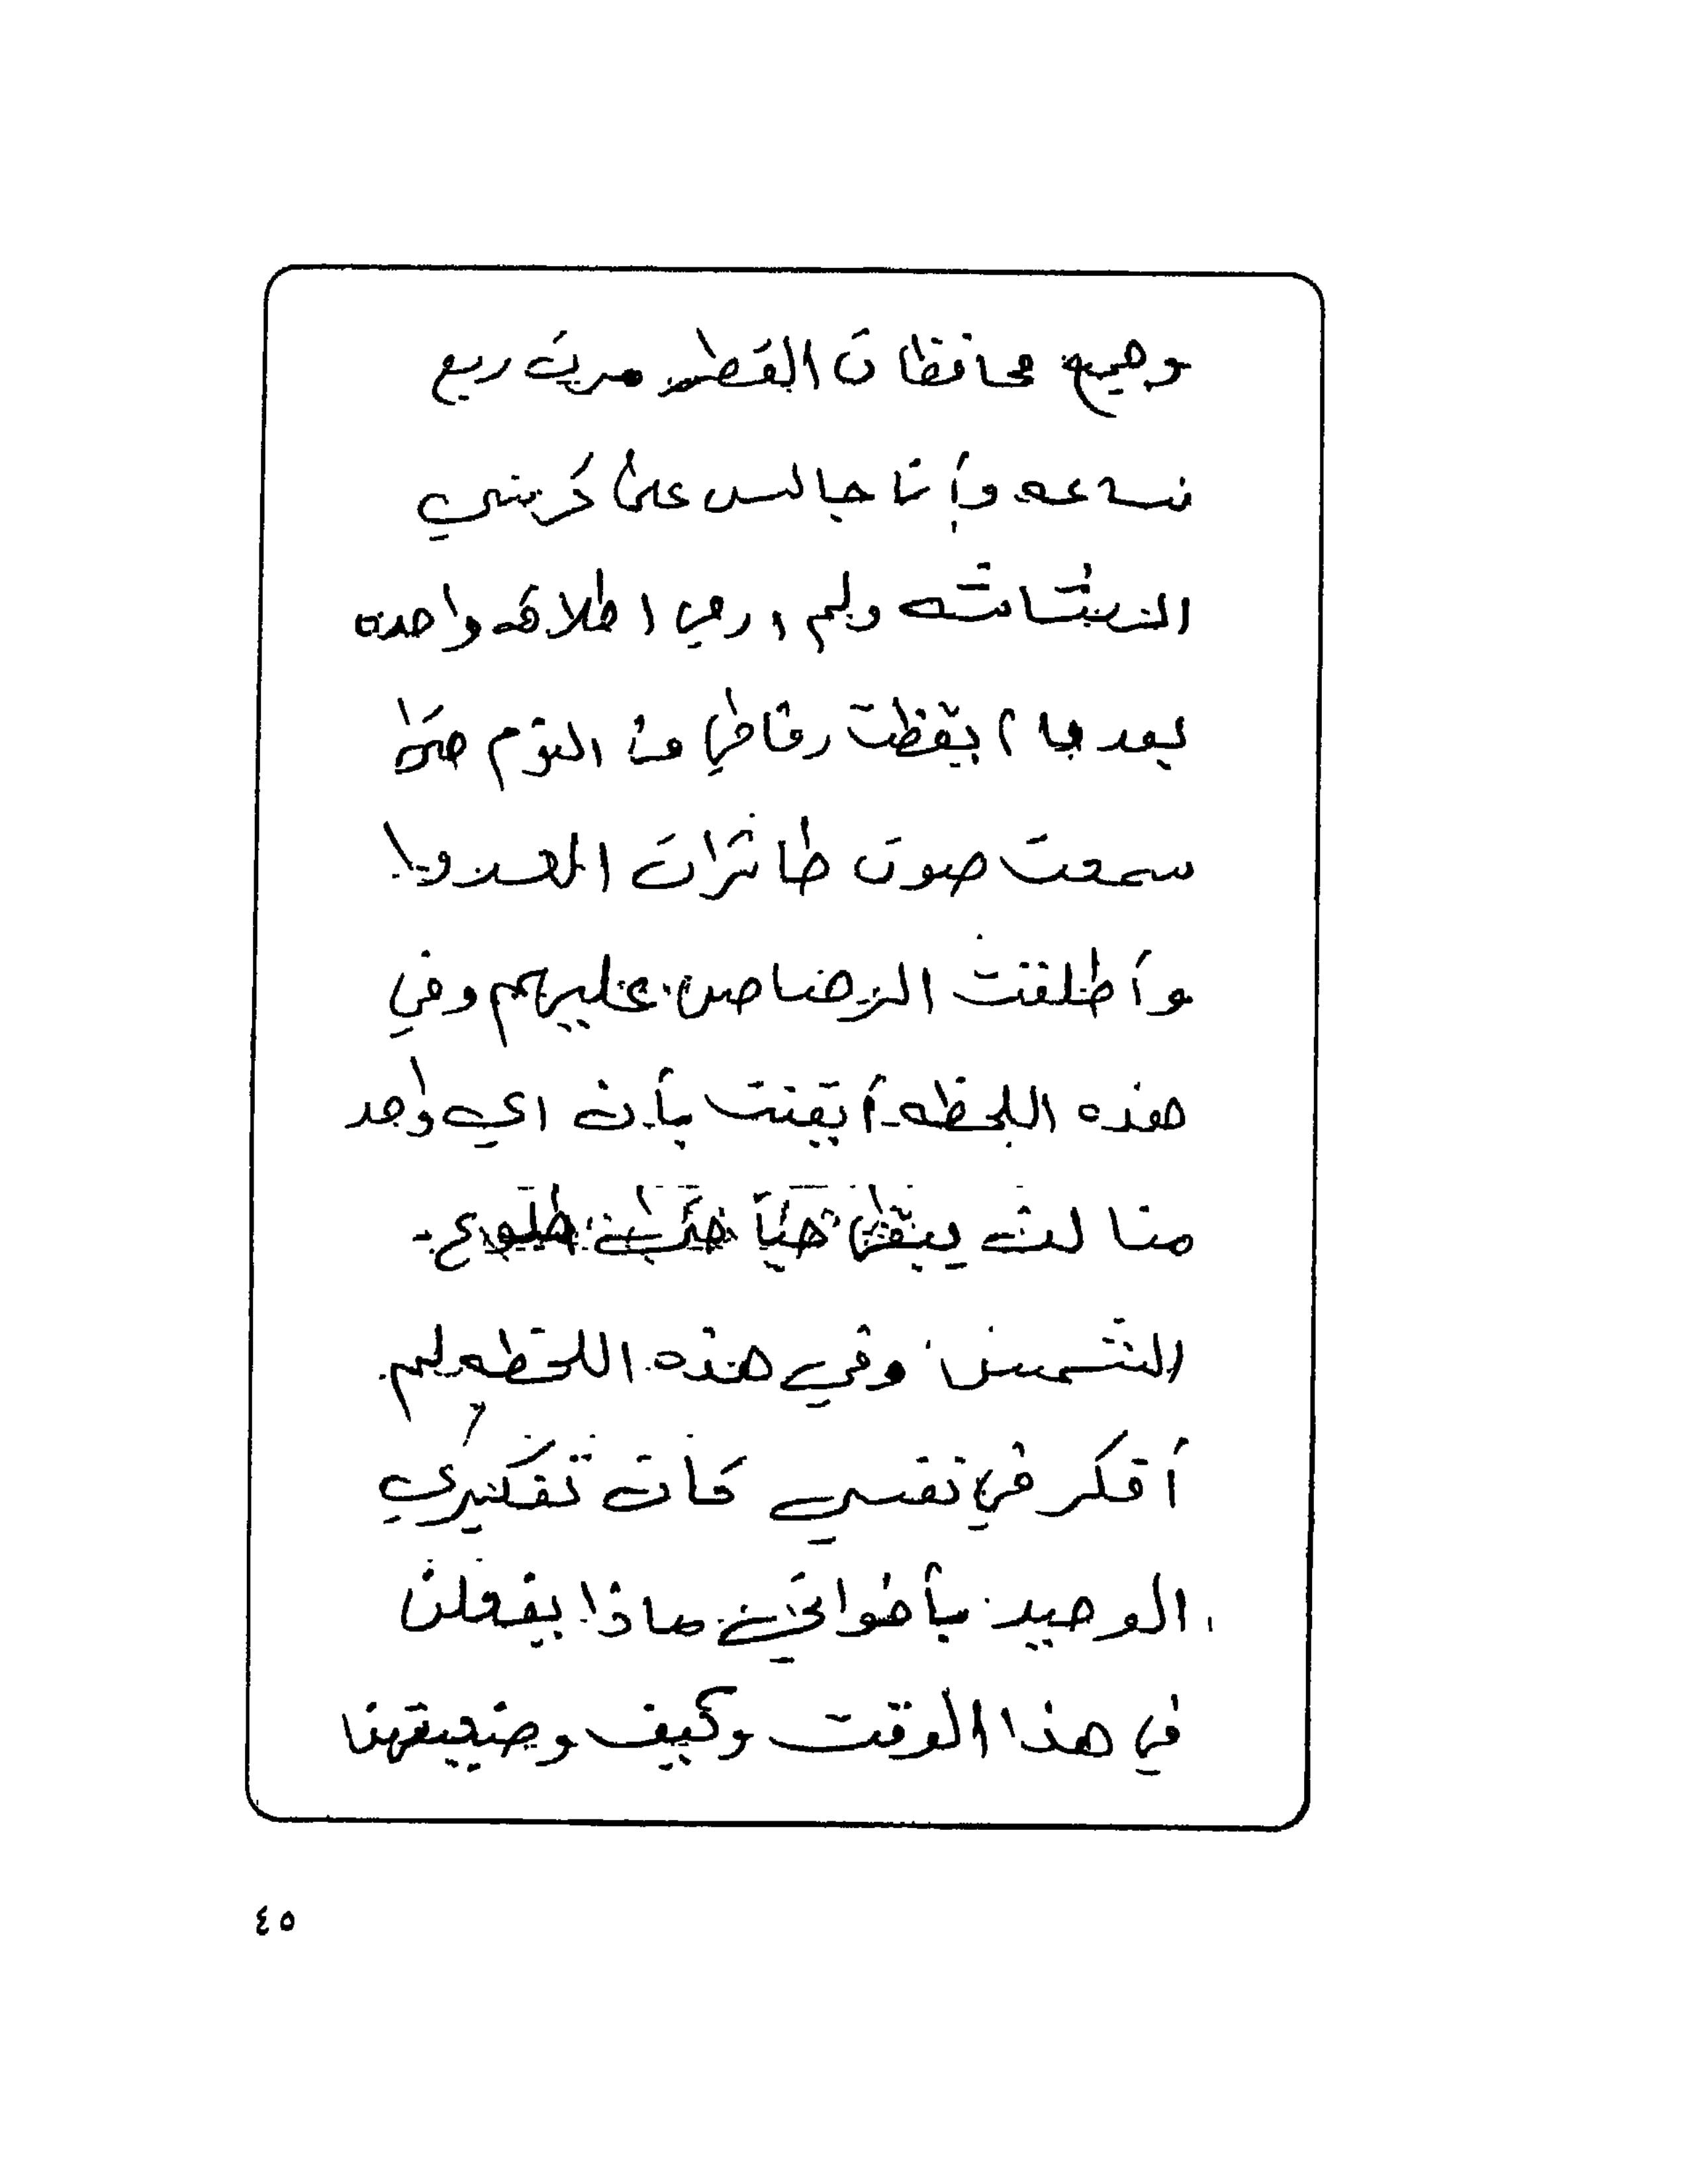 وجميع محافظات القطر مرت ربع
ساعه وأنا جالس على كرسي
الرشاشه ولم ارمي اطلاقه واحده
بعدها ايقظت رفاقي من النوم حتى
سمعت صوت طائرات العدو
وأطلقت الرصاص عليهم وفي
هذه اللحظه أيقنت بأن اي واحد
منا لن يبقى حياً حتى طلوع
الشمس وفي هذه اللحظه لم
أفكر في نفسي كان تفكيري
الوحيد بأخواتي ماذا يفعلن
في هذا الوقت وكيف وضعيتهن
٤٥